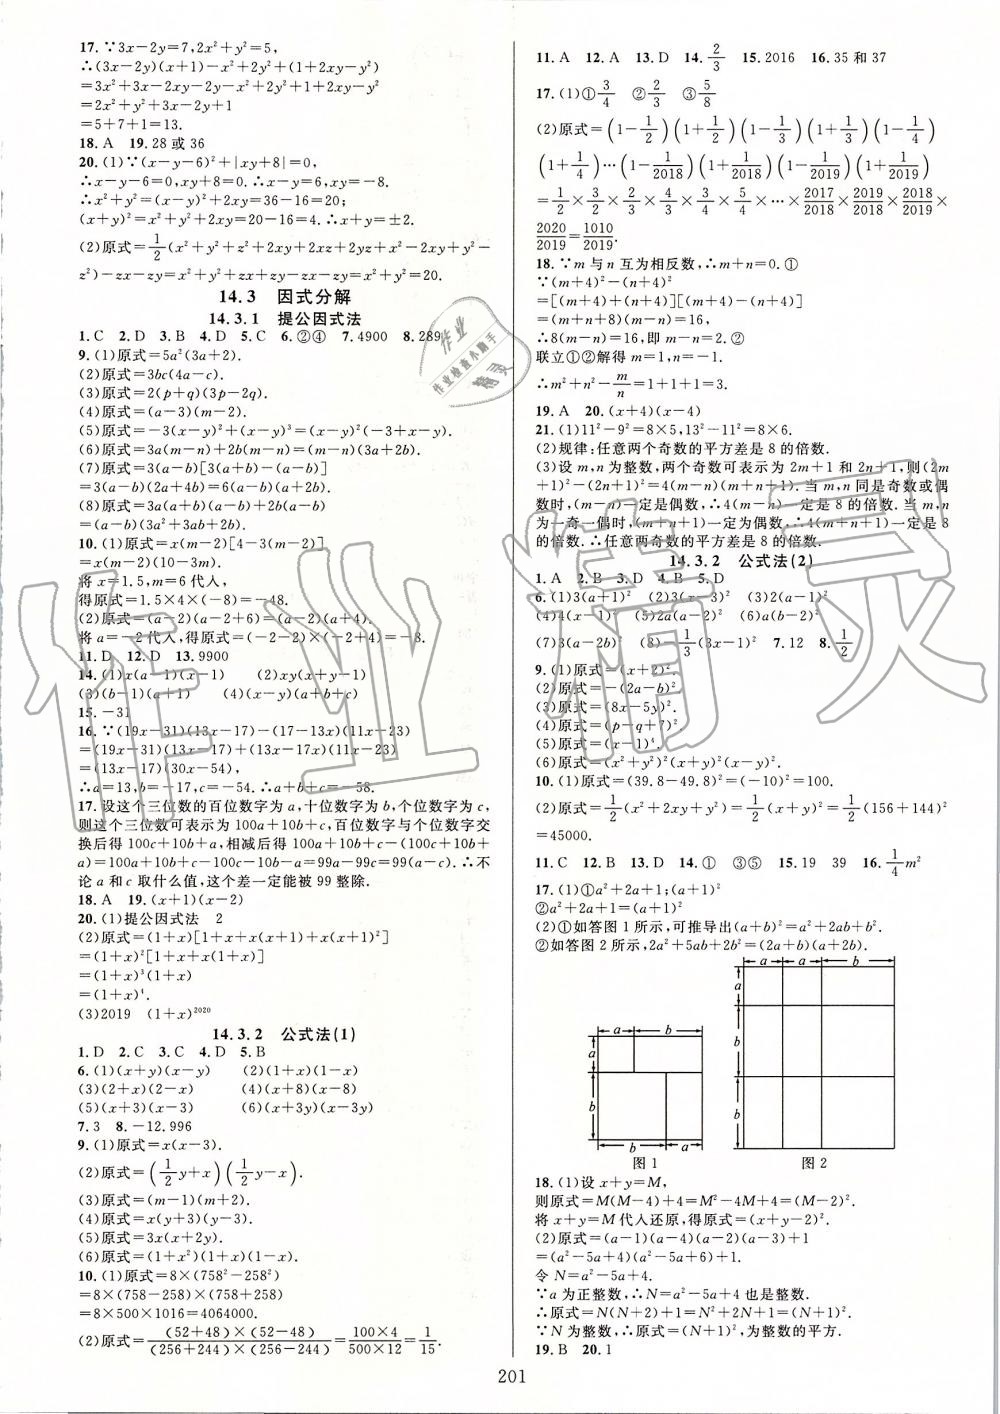 17. ∵3x−2y=7,2x²+y²=5,
∴(3x−2y)(x+1)−x²+2y²+(1+2xy−y²)
=3x²+3x−2xy−2y−x²+2y²+1+2xy−y²
=2x²+y²+3x−2y+1
=5+7+1=13.
18. A 19. 28 或 36
20. (1)∵(x−y−6)²+|xy+8|=0,
∴x−y−6=0,xy+8=0. ∴x−y=6,xy=−8.
∴x²+y²=(x−y)²+2xy=36−16=20;
(x+y)²=x²+y²+2xy=20−16=4. ∴x+y=±2.
(2)原式=1/2(x²+y²+z²+2xy+2xz+2yz+x²−2xy+y²−
z²)−zx−zy=x²+y²+zx+zy−zx−zy=x²+y²=20.
14.3 因式分解
14.3.1 提公因式法
1. C 2. D 3. B 4. D 5. C 6. ②④ 7. 4900 8. 289
9. (1)原式=5a²(3a+2).
(2)原式=3bc(4a−c).
(3)原式=2(p+q)(3p−2q).
(4)原式=(a−3)(m−2).
(5)原式=−3(x−y)²+(x−y)³=(x−y)²(−3+x−y).
(6)原式=3a(m−n)+2b(m−n)=(m−n)(3a+2b).
(7)原式=3(a−b)[3(a+b)+(a−b)]
=3(a−b)(2a+4b)=6(a−b)(a+2b).
(8)原式=3a(a+b)(a−b)+2b(a−b)
=(a−b)(3a²+3ab+2b).
10. (1)原式=x(m−2)[4−3(m−2)]
=x(m−2)(10−3m).
将 x=1.5,m=6 代入,
得原式=1.5×4×(−8)=−48.
(2)原式=(a−2)(a−2+6)=(a−2)(a+4).
将 a=−2 代入,得原式=(−2−2)×(−2+4)=−8.
11. D 12. D 13. 9900
14. (1)x(a−1)(x−1) (2)xy(x−1)
(3)(b−1)(a+1) (4)(x−y)(a+b+c)
15. −31
16. ∵(19x−31)(13x−17)−(17−13x)(11x−23)
=(19x−31)(13x−17)+(13x−17)(11x−23)
=(13x−17)(30x−54),
∴a=13,b=−17,c=−54. ∴a+b+c=−58.
17. 设这个三位数的百位数字为 a,十位数字为 b,个位数字为 c,
则这个三位数可表示为 100a+10b+c,百位数字与个位数字交
换后得 100c+10b+a,相减后得 100a+10b+c−(100c+10b+
a)=100a+10b+c−100c−10b−a=99a−99c=99(a−c). ∴不
论 a 和 c 取什么值,这个差一定能被 99 整除.
18. A 19. (x+1)(x−2)
20. (1)提公因式法 2
(2)原式=(1+x)[1+x+x(x+1)+x(x+1)²]
=(1+x)²[1+x+x(1+x)]
=(1+x)³(1+x)
=(1+x)⁴.
(3)2019 (1+x)²⁰²⁰
14.3.2 公式法(1)
1. D 2. C 3. C 4. D 5. B
6. (1)(x+y)(x−y) (2)(1+x)(1−x)
(3)(2+x)(2−x) (4)(x+8)(x−8)
(5)(x+3)(x−3) (6)(x+3y)(x−3y)
7. 3 8. −12,996
9. (1)原式=x(x−3).
(2)原式=(1/2y+x)(1/2y−x).
(3)原式=(m−1)(m+2).
(4)原式=x(y+3)(y−3).
(5)原式=3x(x+2y).
(6)原式=(1+x²)(1+x)(1−x).
10. (1)原式=8×(758²−258²)
=8×(758−258)×(758+258)
=8×500×1016=4064000.
(2)原式=(52+48)×(52−48)/(256+244)×(256−244)=100×4/500×12=1/15.
11. A 12. A 13. D 14. 2/3 15. 2016 16. 35 和 37
17. (1)①3/4 ②2/3 ③5/8
(2)原式=(1−1/2)(1+1/2)(1−1/3)(1+1/3)(1−1/4)
(1+1/4)⋯(1−1/2018)(1+1/2018)(1−1/2019)(1+1/2019)
=1/2×3/2×2/3×4/3×3/4×5/4×⋯×2017/2018×2019/2018×2018/2019×
2020/2019=1010/2019.
18. ∵m 与 n 互为相反数,∴m+n=0. ①
∵(m+4)²−(n+4)²
=[(m+4)+(n+4)][(m+4)−(n+4)]
=(m+n+8)(m−n)=16,
∴8(m−n)=16,即 m−n=2. ②
联立①②解得 m=1,n=−1.
∴m²+n²−m/n=1+1+1=3.
19. A 20. (x+4)(x−4)
21. (1)11²−9²=8×5,13²−11²=8×6.
(2)规律:任意两个奇数的平方差是 8 的倍数.
(3)设 m,n 为整数,两个奇数可表示为 2m+1 和 2n+1,则(2m
+1)²−(2n+1)²=4(m−n)(m+n+1). 当 m,n 同是奇数或偶
数时,(m−n)一定是偶数,∴4(m−n)一定是 8 的倍数. 当 m,n
为一奇一偶时,(m+n+1)一定为偶数,∴4(m+n+1)一定是 8
的倍数. ∴任意两奇数的平方差是 8 的倍数.
14.3.2 公式法(2)
1. A 2. B 3. D 4. B 5. D
6. (1)3(a+1)² (2)3(x−3)² (3)2(a−1)²
(4)4(x−1)² (5)2a(a−1)² (6)a(b−2)²
(7)3(a−2b)² (8)−1/3(3x−1)² 7. 12 8. 1/2
9. (1)原式=(x+2)².
(2)原式=−(2a−b)².
(3)原式=(8x−5y)².
(4)原式=(p−q+7)².
(5)原式=(x−1)⁴.
(6)原式=(x²+y²)²(x−y)²(x+y)².
10. (1)原式=(39.8−49.8)²=(−10)²=100.
(2)原式=1/2(x²+2xy+y²)=1/2(x+y)²=1/2(156+144)²
=45000.
11. C 12. B 13. D 14. ① ③⑤ 15. 19 39 16. 1/4m²
17. (1)①a²+2a+1;(a+1)²
②a²+2a+1=(a+1)²
(2)①如答图 1 所示,可推导出(a+b)²=a²+2ab+b².
②如答图 2 所示,2a²+5ab+2b²=(2a+b)(a+2b).
a a b
a
b
b
a b
a
b
b a
图 1 图 2
18. (1)设 x+y=M,
则原式=M(M−4)+4=M²−4M+4=(M−2)².
将 x+y=M 代入还原,得原式=(x+y−2)².
(2)原式=(a−1)(a−4)(a−2)(a−3)+1
=(a²−5a+4)(a²−5a+6)+1.
令 N=a²−5a+4.
∵a 为正整数,∴N=a²−5a+4 也是整数.
∴原式=N(N+2)+1=N²+2N+1=(N+1)².
∵N 为整数,∴原式=(N+1)²,为整数的平方.
19. B 20. 1
201
作业
作业检查小助手
精灵
作业精灵